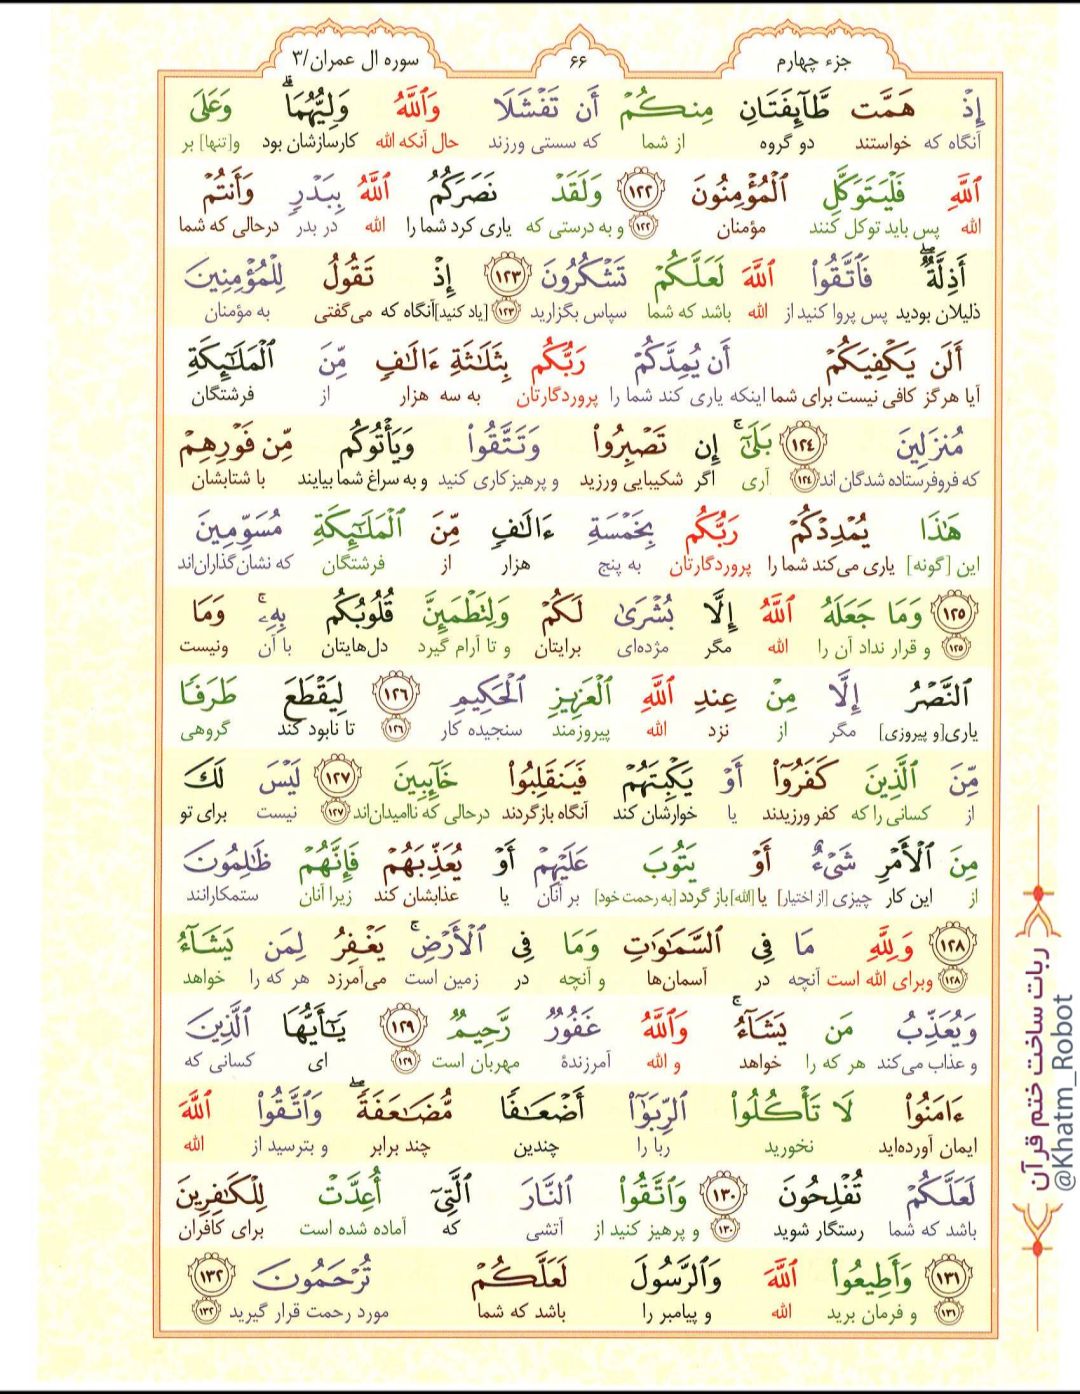 جزء چهارم
۶۶
سوره ال عمران/۳
إِذْ هَمَّت طَّآئِفَتَانِ مِنكُمْ أَن تَفْشَلَا وَٱللَّهُ وَلِيُّهُمَاۗ وَعَلَى
آنگاه که خواستند دو گروه از شما که سستی ورزند حال آنکه الله کارسازشان بود و[تنها] بر
ٱللَّهِ فَلْيَتَوَكَّلِ ٱلْمُؤْمِنُونَ ١٢٢ وَلَقَدْ نَصَرَكُمُ ٱللَّهُ بِبَدْرٍ وَأَنتُمْ
الله پس باید توکل کنند مؤمنان ۱۲۲ و به درستی که یاری کرد شما را الله در بدر درحالی که شما
أَذِلَّةٌۖ فَٱتَّقُوا۟ ٱللَّهَ لَعَلَّكُمْ تَشْكُرُونَ ١٢٣ إِذْ تَقُولُ لِلْمُؤْمِنِينَ
ذلیلان بودید پس پروا کنید از الله باشد که شما سپاس بگزارید ۱۲۳ [یاد کنید]آنگاه که می‌گفتی به مؤمنان
أَلَن يَكْفِيَكُمْ أَن يُمِدَّكُمْ رَبُّكُم بِثَلَـٰثَةِ ءَالَـٰفٍ مِّنَ ٱلْمَلَـٰٓئِكَةِ
آیا هرگز کافی نیست برای شما اینکه یاری کند شما را پروردگارتان به سه هزار از فرشتگان
مُنزَلِينَ ١٢٤ بَلَىٰٓۚ إِن تَصْبِرُوا۟ وَتَتَّقُوا۟ وَيَأْتُوكُم مِّن فَوْرِهِمْ
که فروفرستاده شدگان اند ۱۲۴ آری اگر شکیبایی ورزید و پرهیزکاری کنید و به سراغ شما بیایند با شتابشان
هَـٰذَا يُمْدِدْكُمْ رَبُّكُم بِخَمْسَةِ ءَالَـٰفٍ مِّنَ ٱلْمَلَـٰٓئِكَةِ مُسَوِّمِينَ
این [گونه] یاری می‌کند شما را پروردگارتان به پنج هزار از فرشتگان که نشان‌گذاران‌اند
١٢٥ وَمَا جَعَلَهُ ٱللَّهُ إِلَّا بُشْرَىٰ لَكُمْ وَلِتَطْمَئِنَّ قُلُوبُكُم بِهِۦۗ وَمَا
۱۲۵ و قرار نداد آن را الله مگر مژده‌ای برایتان و تا آرام گیرد دل‌هایتان با آن ونیست
ٱلنَّصْرُ إِلَّا مِنْ عِندِ ٱللَّهِ ٱلْعَزِيزِ ٱلْحَكِيمِ ١٢٦ لِيَقْطَعَ طَرَفًا
یاری[و پیروزی] مگر از نزد الله پیروزمند سنجیده کار ۱۲۶ تا نابود کند گروهی
مِّنَ ٱلَّذِينَ كَفَرُوٓا۟ أَوْ يَكْبِتَهُمْ فَيَنقَلِبُوا۟ خَآئِبِينَ ١٢٧ لَيْسَ لَكَ
از کسانی را که کفر ورزیدند یا خوارشان کند آنگاه بازگردند درحالی که ناامیدان‌اند ۱۲۷ نیست برای تو
مِنَ ٱلْأَمْرِ شَىْءٌ أَوْ يَتُوبَ عَلَيْهِمْ أَوْ يُعَذِّبَهُمْ فَإِنَّهُمْ ظَـٰلِمُونَ
از این کار چیزی [از اختیار] یا [الله] باز گردد [به رحمت خود] بر آنان یا عذابشان کند زیرا آنان ستمکارانند
١٢٨ وَلِلَّهِ مَا فِى ٱلسَّمَـٰوَٰتِ وَمَا فِى ٱلْأَرْضِۚ يَغْفِرُ لِمَن يَشَآءُ
۱۲۸ وبرای الله است آنچه در آسمان‌ها و آنچه در زمین است می‌آمرزد هر که را خواهد
وَيُعَذِّبُ مَن يَشَآءُۚ وَٱللَّهُ غَفُورٌ رَّحِيمٌ ١٢٩ يَـٰٓأَيُّهَا ٱلَّذِينَ
و عذاب می‌کند هر که را خواهد و الله آمرزندهٔ مهربان است ۱۲۹ ای کسانی که
ءَامَنُوا۟ لَا تَأْكُلُوا۟ ٱلرِّبَوٰٓا۟ أَضْعَـٰفًا مُّضَـٰعَفَةًۖ وَٱتَّقُوا۟ ٱللَّهَ
ایمان آورده‌اید نخورید ربا را چندین چند برابر و بترسید از الله
لَعَلَّكُمْ تُفْلِحُونَ ١٣٠ وَٱتَّقُوا۟ ٱلنَّارَ ٱلَّتِىٓ أُعِدَّتْ لِلْكَـٰفِرِينَ
باشد که شما رستگار شوید ۱۳۰ و پرهیز کنید از آتشی که آماده شده است برای کافران
١٣١ وَأَطِيعُوا۟ ٱللَّهَ وَٱلرَّسُولَ لَعَلَّكُمْ تُرْحَمُونَ ١٣٢
۱۳۱ و فرمان برید الله و پیامبر را باشد که شما مورد رحمت قرار گیرید ۱۳۲
ربات ساخت ختم قرآن
@Khatm_Robot